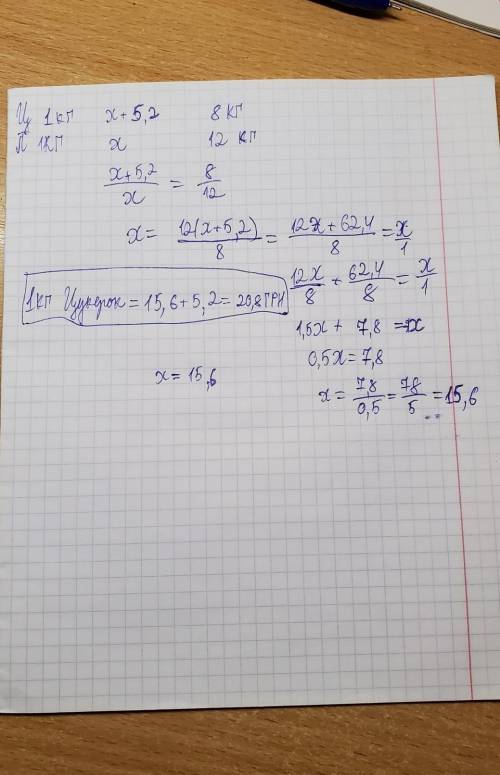 Ц 1 кг x+5,2 8 кг
П 1КГ x 12 кг
x+5,2 / x = 8 / 12
x = 12(x+5,2) / 8 = 12x+62,4 / 8 = x / 1
12x / 8 + 62,4 / 8 = x / 1
1 кг Цукерок = 15,6+5,2 = 20,8 ГРН
1,5x + 7,8 = x
0,5x = 7,8
x = 15,6
x = 7,8 / 0,5 = 78 / 5 = 15,6